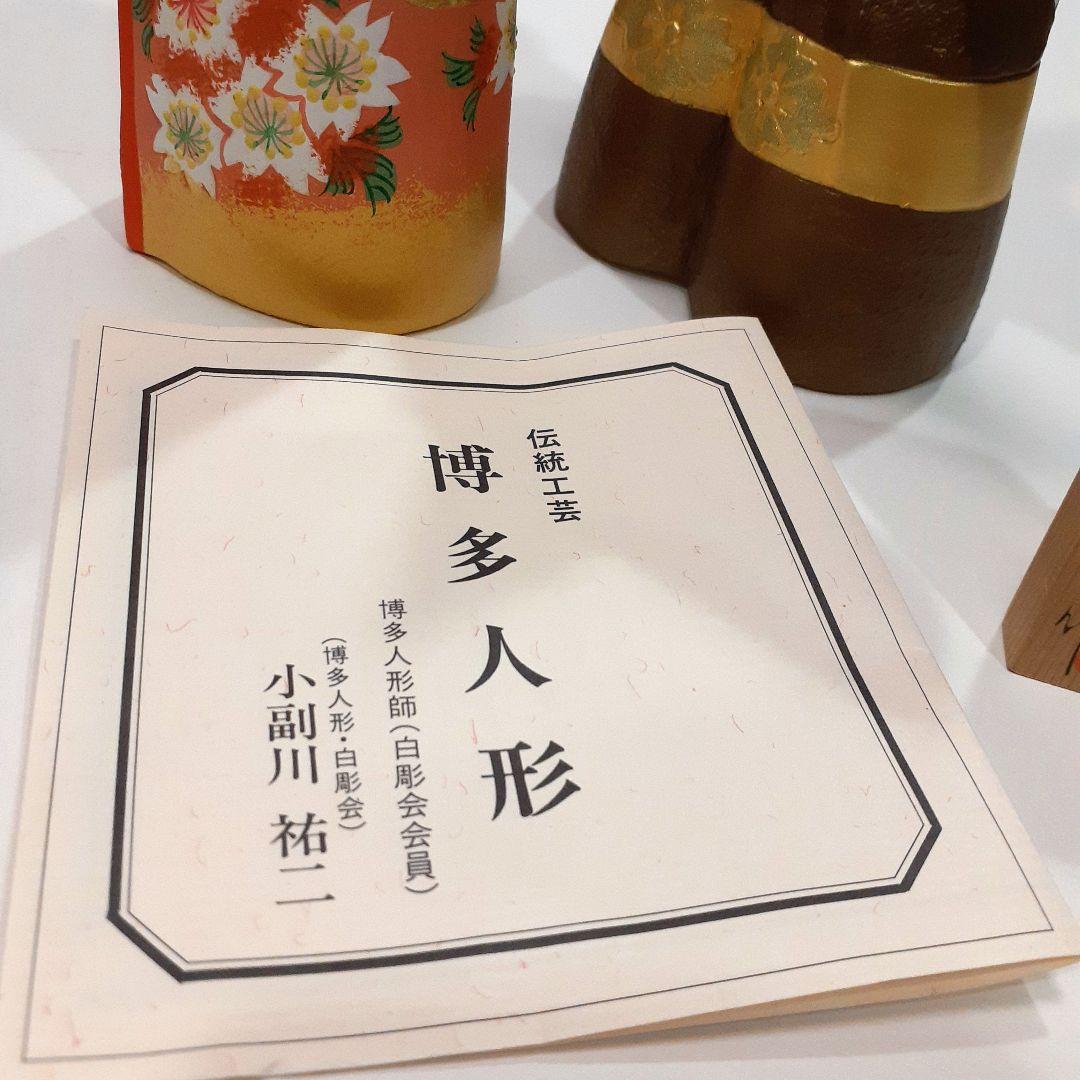 伝統工芸
博多人形
博多人形師（白彫会会員）
（博多人形・白彫会）
小副川 祐二